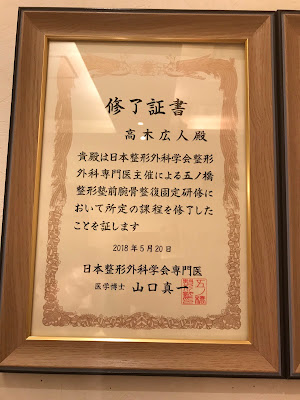 修了証書
高木広人殿
貴殿は日本整形外科学会整形
外科専門医主催による五ノ橋
整形塾前腕骨整復固定研修に
おいて所定の課程を修了した
ことを証します
2018年5月20日
日本整形外科学会専門医
医学博士 山口真一